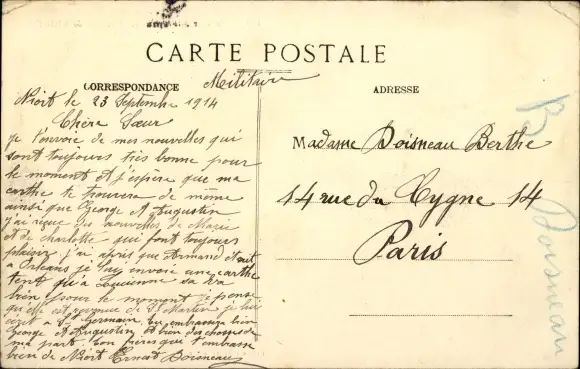 CARTE POSTALE
Militaire
CORRESPONDANCE
Niort le 23 Septembre 1914
Chère Sœur
je t'envoie de mes nouvelles qui
sont toujours très bonne pour
le moment et j'espère que ma
carthe te trouvera de même
ainsi que George et Augustin
j'ai reçue des nouvelles de Marie
et de charlotte qui font toujours
plaisir j'ai apris que Armand était
a Orléans je lui envoie une carthe
tent qu'a Lucienne sa va
bien pour le moment je pense
qu'elle est revenue de St Martin je lui
écrit a St Germain tu embrassera bien
George et Augustin et bien des choses de
ma part ton frères que t'embrasse
bien de Niort Ernest Boisneau
ADRESSE
Madame Boisneau Berthe
14 rue du Cygne 14
Paris
B
Boisneau